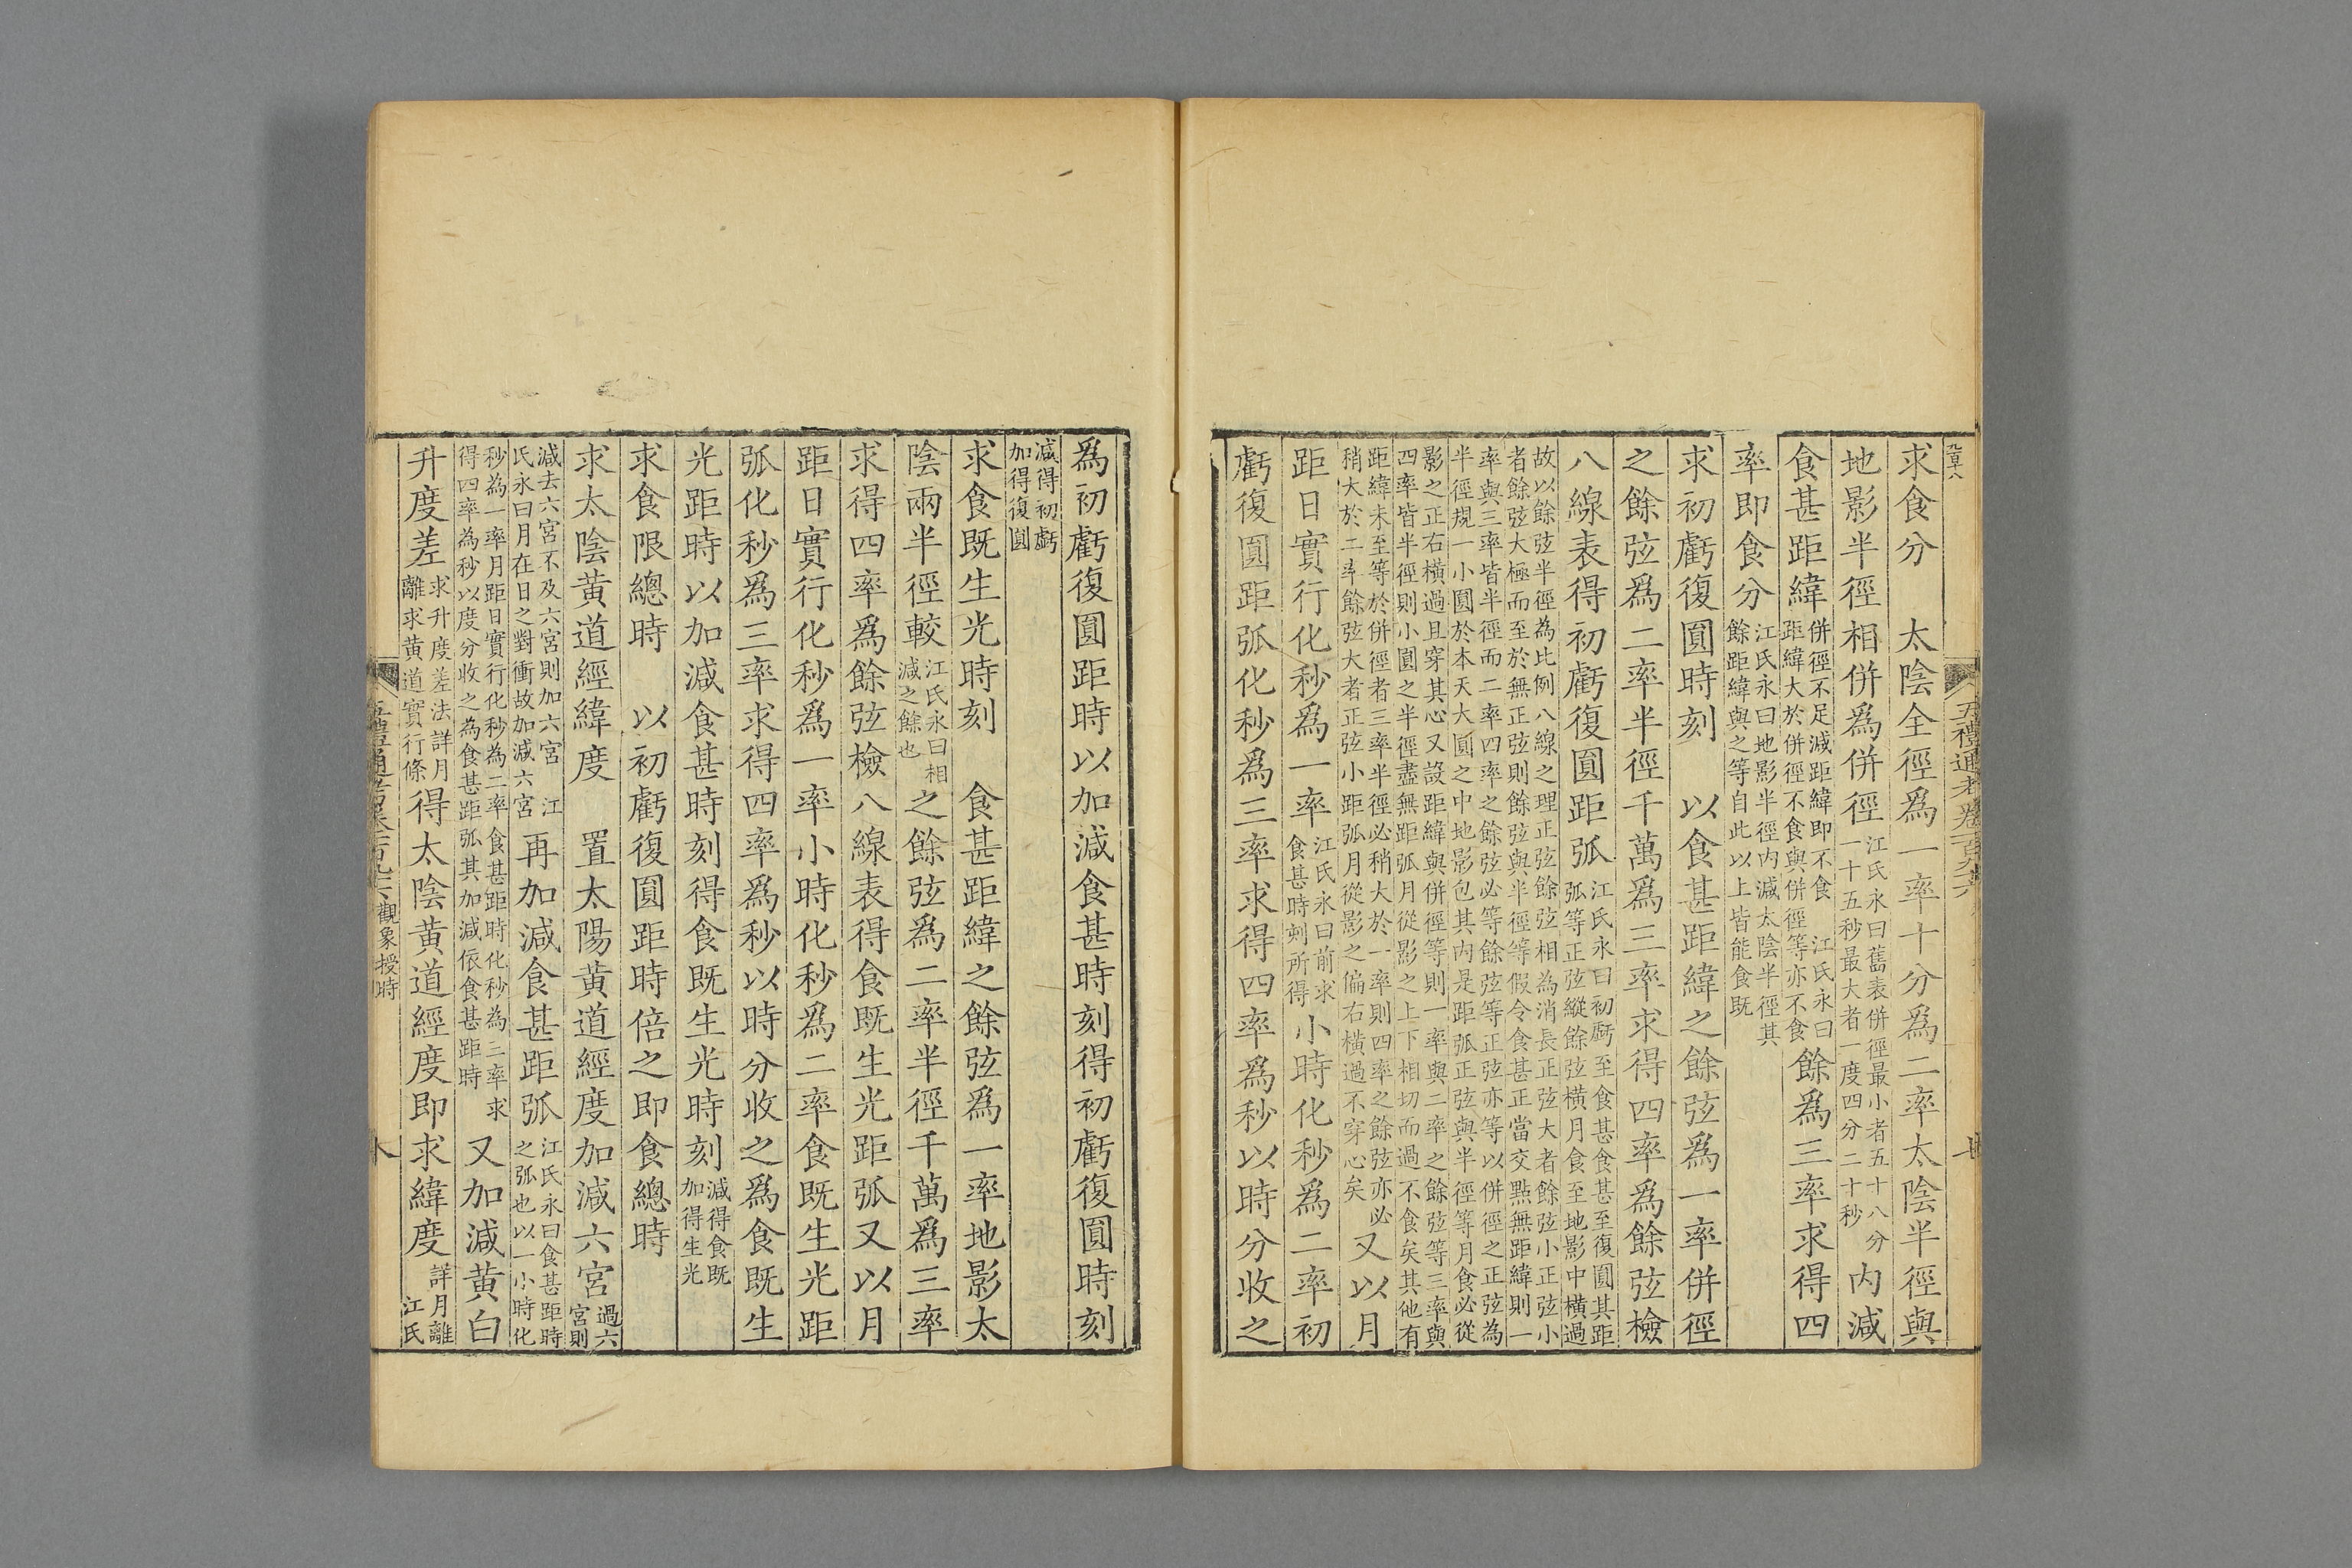 五禮通考卷一百九十六
求食分　太陰全徑爲一率十分爲二率太陰半徑與
地影半徑相併爲併徑江氏永曰舊表併徑最小者五十八分一十五秒最大者一度四分二十秒内減
食甚距緯併徑不足減距緯即不食　江氏永曰距緯大於併徑不食與併徑等亦不食餘爲三率求得四
率即食分江氏永曰地影半徑内減太陰半徑其餘距緯與之等自此以上皆能食既
求初虧復圓時刻　以食甚距緯之餘弦爲一率併徑
之餘弦爲二率半徑千萬爲三率求得四率爲餘弦檢
八線表得初虧復圓距弧江氏永曰初虧至食甚食甚至復圓其距弧等正弦縱餘弦橫月食至地影中橫過
故以餘弦半徑為比例八線之理正弦餘弦相為消長正弦大者餘弦小正弦小
者餘弦大極而至於無正弦則餘弦與半徑等假令食甚正當交㸃無距緯則一
率與三率皆半徑而二率四率之餘弦必等餘弦等正弦亦等以併徑之正弦為
半徑規一小圓於本天大圓之中地影包其内是距弧正弦與半徑等月食必從
影之正右橫過且穿其心又設距緯與併徑等則一率與二率之餘弦等三率與
四率皆半徑則小圓之半徑盡無距弧月從影之上下相切而過不食矣其他有
距緯未至等於併徑者三率半徑必稍大於一率則四率之餘弦亦必
稍大於二率餘弦大者正弦小距弧月從影之偏右橫過不穿心矣又以月
距日實行化秒爲一率江氏永曰前求食甚時刻所得小時化秒爲二率初
虧復圓距弧化秒爲三率求得四率爲秒以時分收之
爲初虧復圓距時以加減食甚時刻得初虧復圓時刻
減得初虧加得復圓
求食既生光時刻　食甚距緯之餘弦爲一率地影太
陰兩半徑較江氏永曰相減之餘也之餘弦爲二率半徑千萬爲三率
求得四率爲餘弦檢八線表得食既生光距弧又以月
距日實行化秒爲一率小時化秒爲二率食既生光距
弧化秒爲三率求得四率爲秒以時分收之爲食既生
光距時以加減食甚時刻得食既生光時刻減得食既加得生光
求食限總時　以初虧復圓距時倍之即食總時
求太陰黃道經緯度　置太陽黃道經度加減六宮過六宮則
減去六宮不及六宮則加六宮　江氏永曰月在日之對衝故加減六宮再加減食甚距弧江氏永曰食甚距時之弧也以一小時化
秒為一率月距日實行化秒為二率食甚距時化秒為三率求得四率為秒以度分收之為食甚距弧其加減依食甚距時又加減黃白
升度差求升度差法詳月離求黃道實行條得太陰黃道經度即求緯度詳月離　江氏
五禮通考卷一百九十六　觀象授時